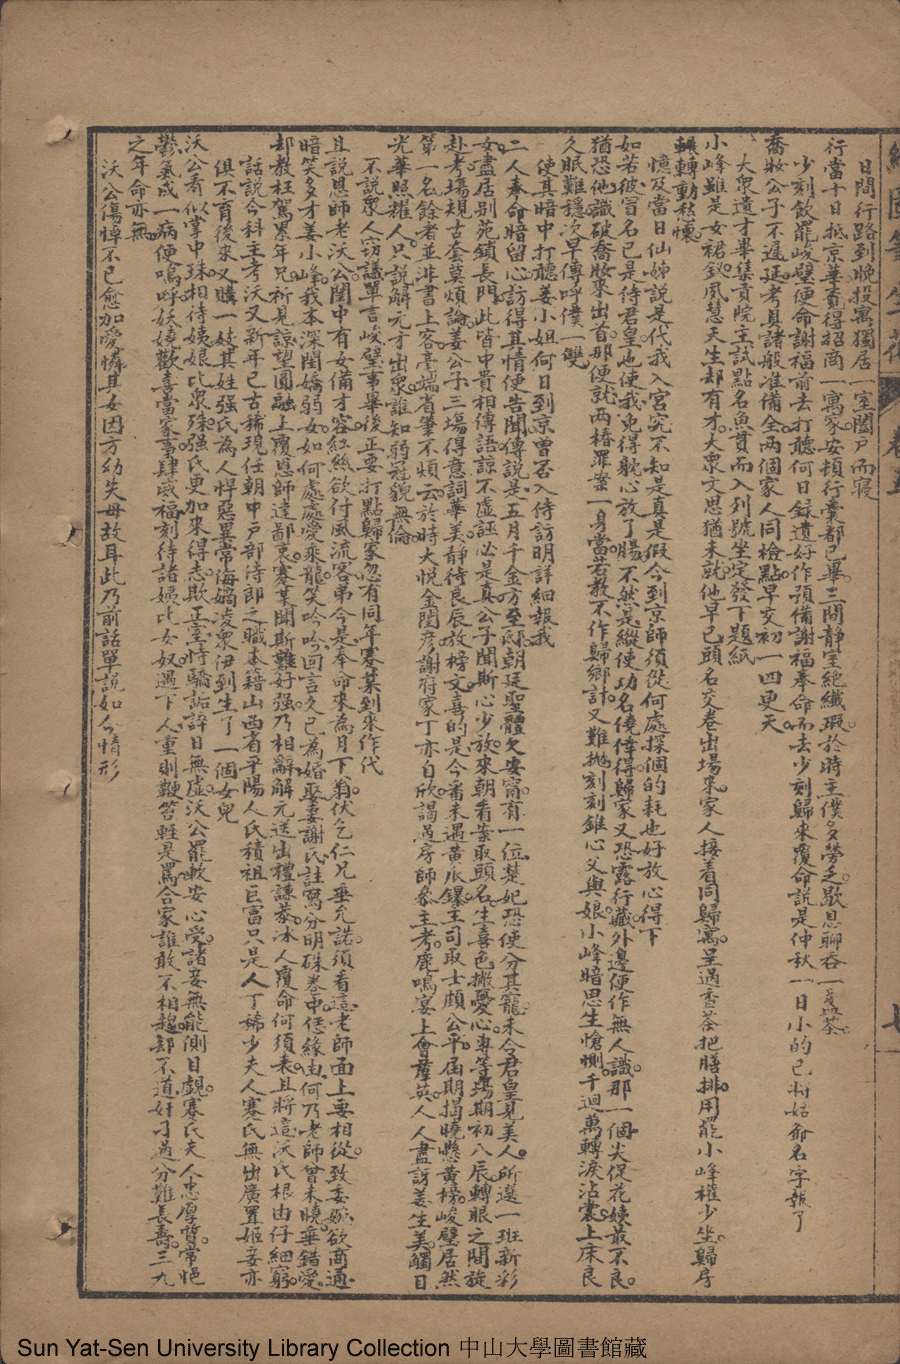 日間行路到晚投寓獨居一室闔戶而寢
行當十日抵京華看得招商一寓家安頓行囊都已畢三間靜室絕纖瑕於時主僕多勞乏歇息聊吞一盞茶
少刻飲罷峻璧便命謝福前去打聽何日錄遺好作預備謝福奉命而去少刻歸來覆命說是仲秋一日小的已將姑爺名字報了
喬妝公子不遲延考具諸般准備全兩個家人同檢點早交初一四更天
大衆遺才畢集貢院主試點名魚貫而入列號坐定發下題紙
小峰雖是女裙釵夙慧天生却有才大衆文思猶未就他早已頭名交卷出場來家人接着同歸寓呈過香茶把膳排用罷小峰權少坐歸房
輾轉動愁懷
憶及當日仙姊說是代我入宮究不知是真是假今到京師須從何處探個的耗也好放心得下
如若彼冒名已是侍君皇也使我免得躭心放了腸不然是縱使功名僥倖得歸家又恐露行藏外邊便作無人識那一個尖促花姨最不良
猶恐他識破喬妝來出首那便就兩樁罪案一身當若教不作歸鄉計又難拋刻刻錐心父與娘小峰暗思生愴惻千迴萬轉淚沾裳上床良
久眠難穩次早傳呼僕一雙
使其暗中打聽姜小姐何日到京曾否入侍訪明詳細報我
二人奉命暗留心訪得其情便告聞傳說是五月千金方至邸朝廷聖體欠安甯有一位楚妃恐使分其寵未令君皇見美人所選一班新彩
女盡居別苑鎖長門此皆中貴相傳語諒不虛誣必是真公子聞斯心少放來朝看案取頭名生喜色撇憂心專等場期初八辰轉眼之間旋
赴考場規古套莫煩論姜公子三場得意詞華美靜待良辰放榜文喜的是今番未遇黃瓜鑤主司取士頗公平屆期揭曉懸黃榜峻璧居然
第一名餘者並非書上客亳端省筆不煩云於時大悅金閨彥謝府家丁亦自欣謁過房師叅主考鹿鳴宴上會羣英人人盡訪姜生美觸目
光華照耀人只說解元才出衆誰知弱冠貌無倫
不說衆人窃議單言峻璧事畢後正要打點歸家忽有同年蹇某到來作代
且說恩師老沃公閨中有女備才容紅絲欲付風流客弟今是奉命來為月下翁伏乞仁兄垂允諾須看這老師面上要相從致委婉欲商通
暗笑多才姜小峰我本深閨嬌弱女如何處處愛乘龍笑吟吟回言久已為婚娶妻謝氏註寫分明硃卷中恁緣由何乃老師曾未曉垂錯愛
却教枉駕累年兄祈見諒望圓融上覆恩師達鄙衷蹇某聞斯難好强乃相辭解元送出禮謙恭冰人覆命何須表且將這沃氏根由仔細窮
話說今科主考沃又新年已古稀現任朝中戶部侍郎之職本籍山西省平陽人氏積祖巨富只是人丁稀少夫人蹇氏無出廣置姬妾亦
俱不育後來又購一妓其姓强氏為人悍惡異常侮嫡凌衆伊到生了一個女兒
沃公看似掌中珠相待姨娘比衆殊强氏更加來得志欺正室恃驕詬誶日無虛沃公罷軟安心受諸妾無能側目覷蹇氏夫人忠厚質常悒
鬱氣成一病便嗚呼妖嬈歡喜當家事肆威福刻待諸姨比女奴過下人重則鞭笞輕是罵合家誰敢不相趨却不道奸刁過分難長壽三九
之年命亦無
沃公傷悼不已愈加愛憐其女因方幼失母故耳此乃前話單說如今情形
Sun Yat-Sen University Library Collection 中山大學圖書館藏